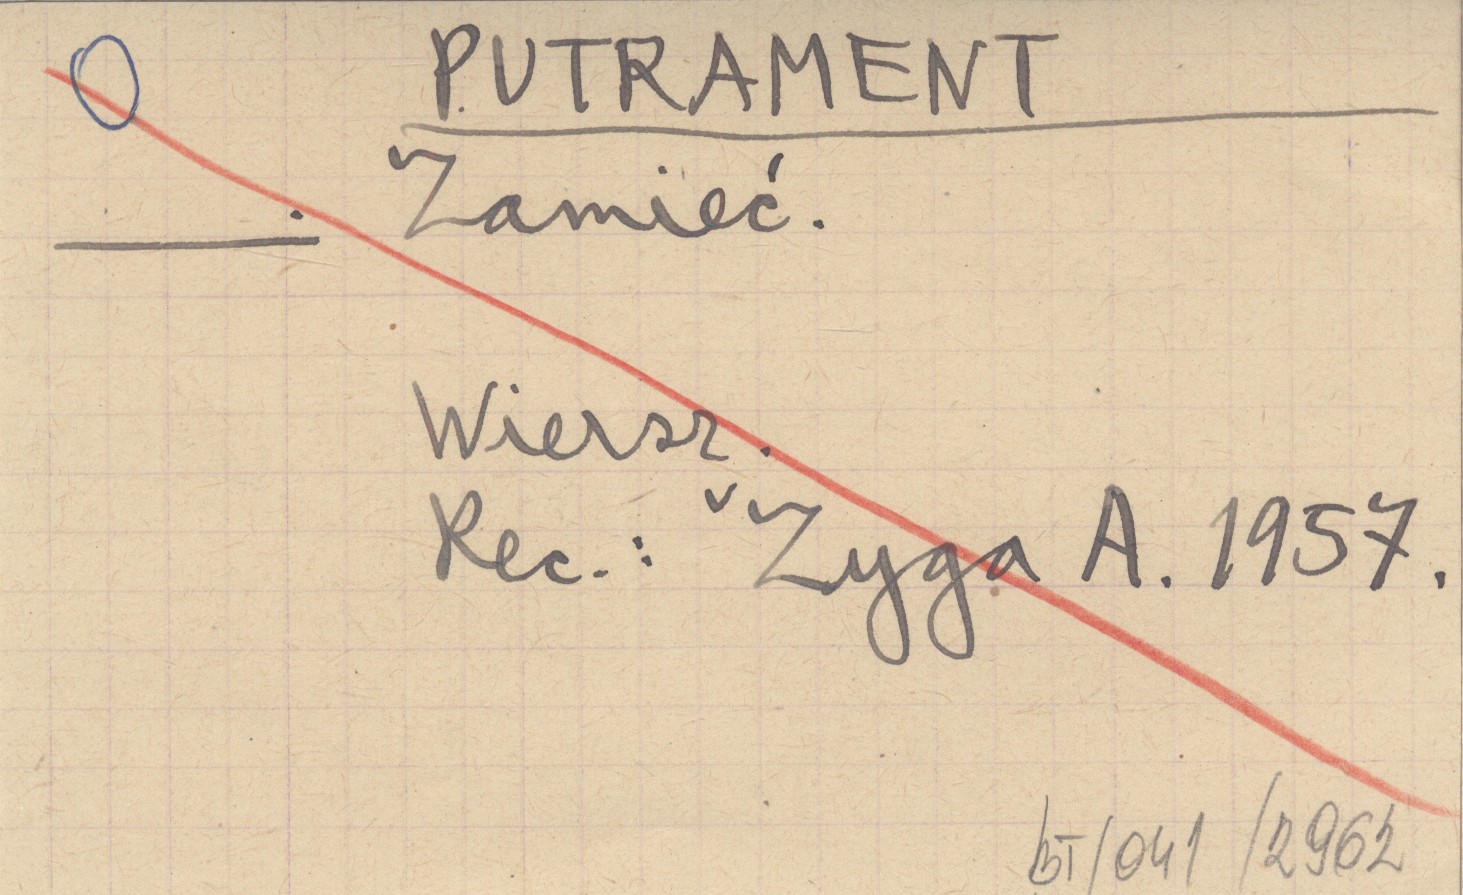 PUTRAMENT
Zamieć.
Wiersz.
Rec.: Zyga A. 1957.
BT/041/2962